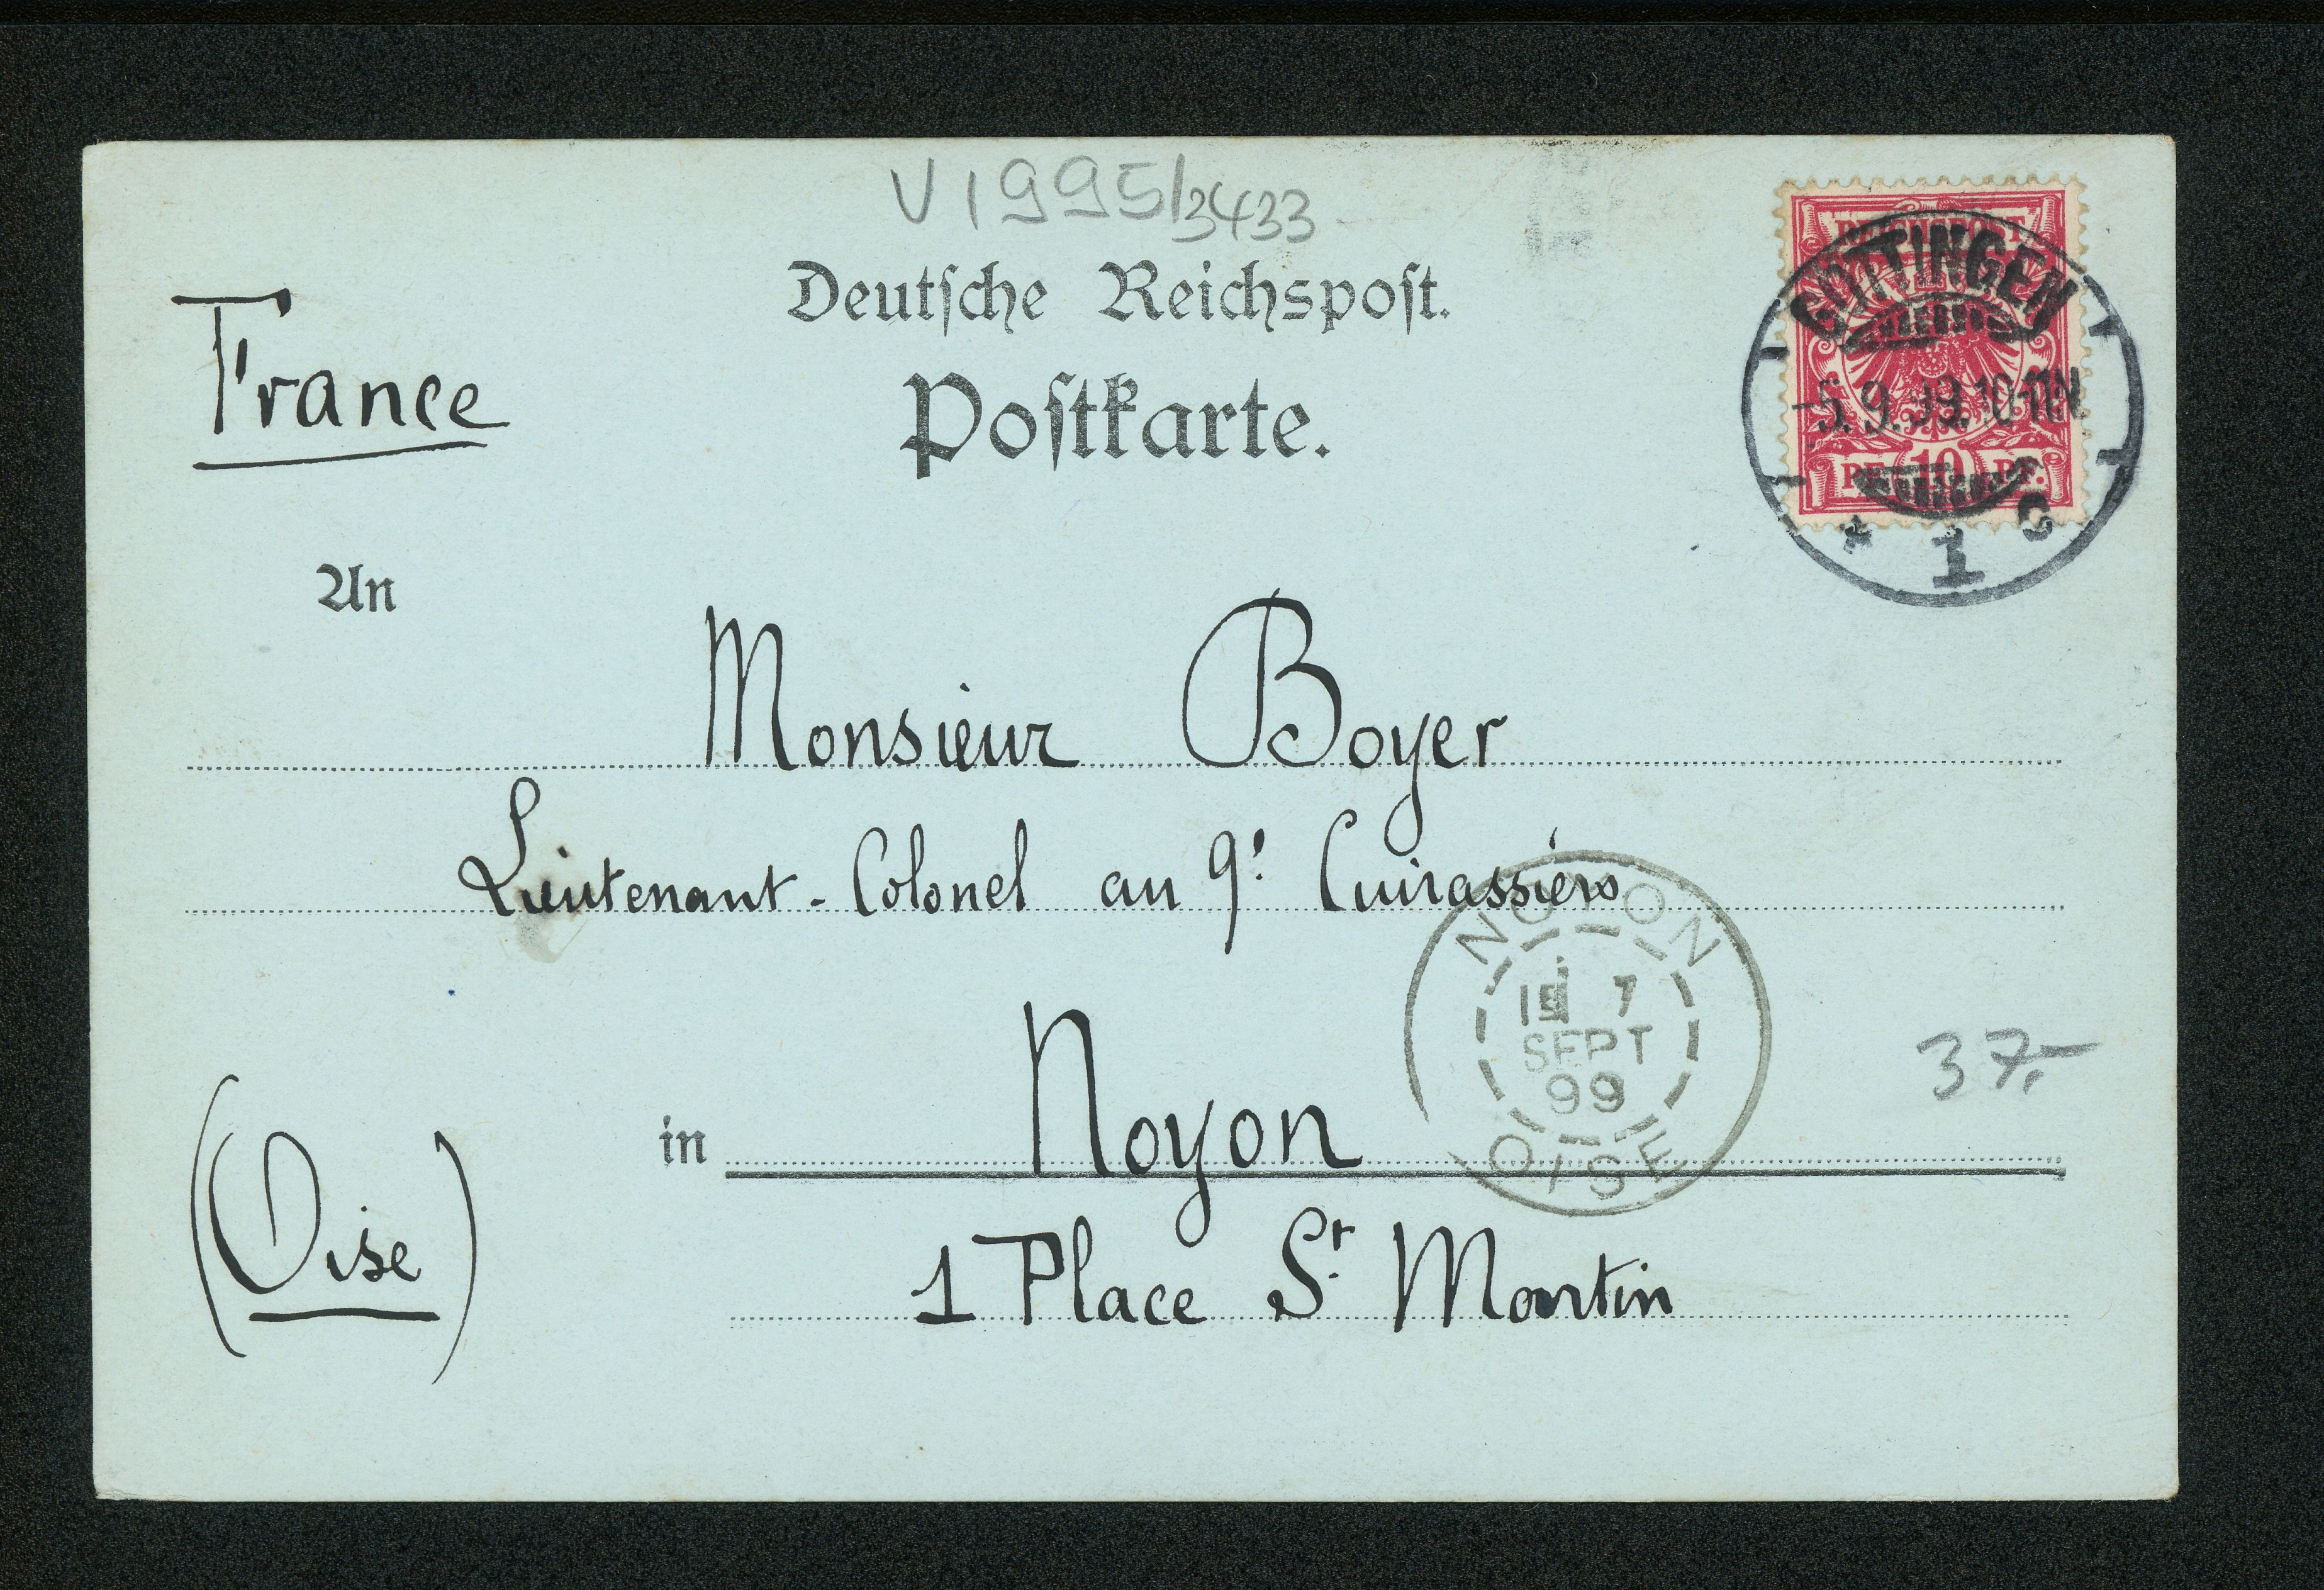 V 1995/3433
Deutsche Reichspost.
Postkarte.
France
REICHSPOST
GÖTTINGEN
-5.9.99.10-11N
PF. 10 PF.
* 1 c
An
Monsieur Boyer
Lieutenant-Colonel au 9e Cuirassiers
NOYON
7
SEPT
99
OISE
37.-
in Noyon
(Oise)
1 Place St Martin